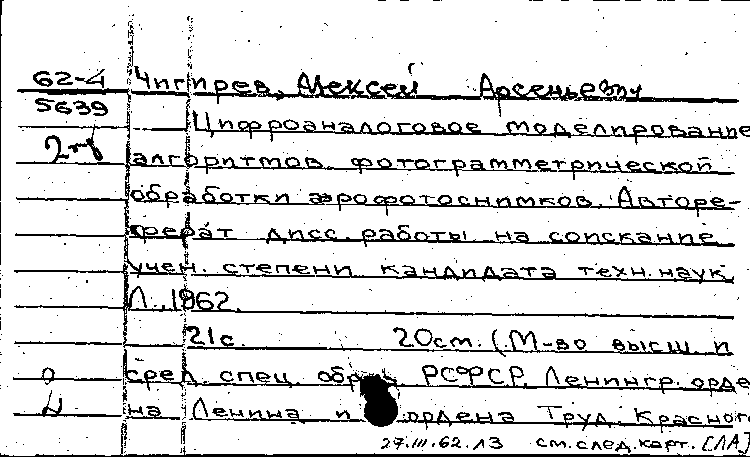 62-4 Чигирев, Алексей Арсеньевич
5639
Цифроаналоговое моделирование
алгоритмов фотограмметрической
обработки аэрофотоснимков. Авторе-
ферат дисс. работы на соискание
учен. степени кандидата техн. наук
Л., 1962.
21с. 20см. (М-во высш. и
сред. спец. образ РСФСР. Ленингр. орде
на Ленина и ордена Труд. Красного
27.III.62.ЛЗ см. след. карт. [ЛА]